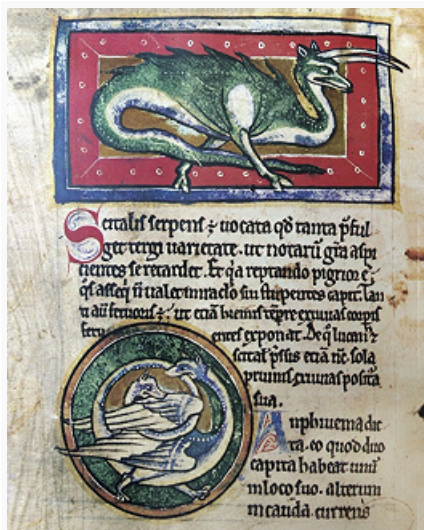 Scitalis serpens ⁊ uocata qđ tanta p̄ful
get tergi uarietate. ut notarū gr̄a aspi
cientes se retardet. Et q̄a reptando pigrior ē.
q̄s asseq̄ n̄ ualet miraclo sui stupentes capit. Tan
ti aū feruoris ⁊. ut etiā hiemis tēpre exuuias corpis
feru entes exponat. De q̄ lucan᷒ ⁊
scital p̄sus etiā nc̄ sola
pruinis exuuias posita
sua.
Anphiuema dic
ta. eo quod duo
capita habeat. unū
in loco suo. alterum
in cauda. currens